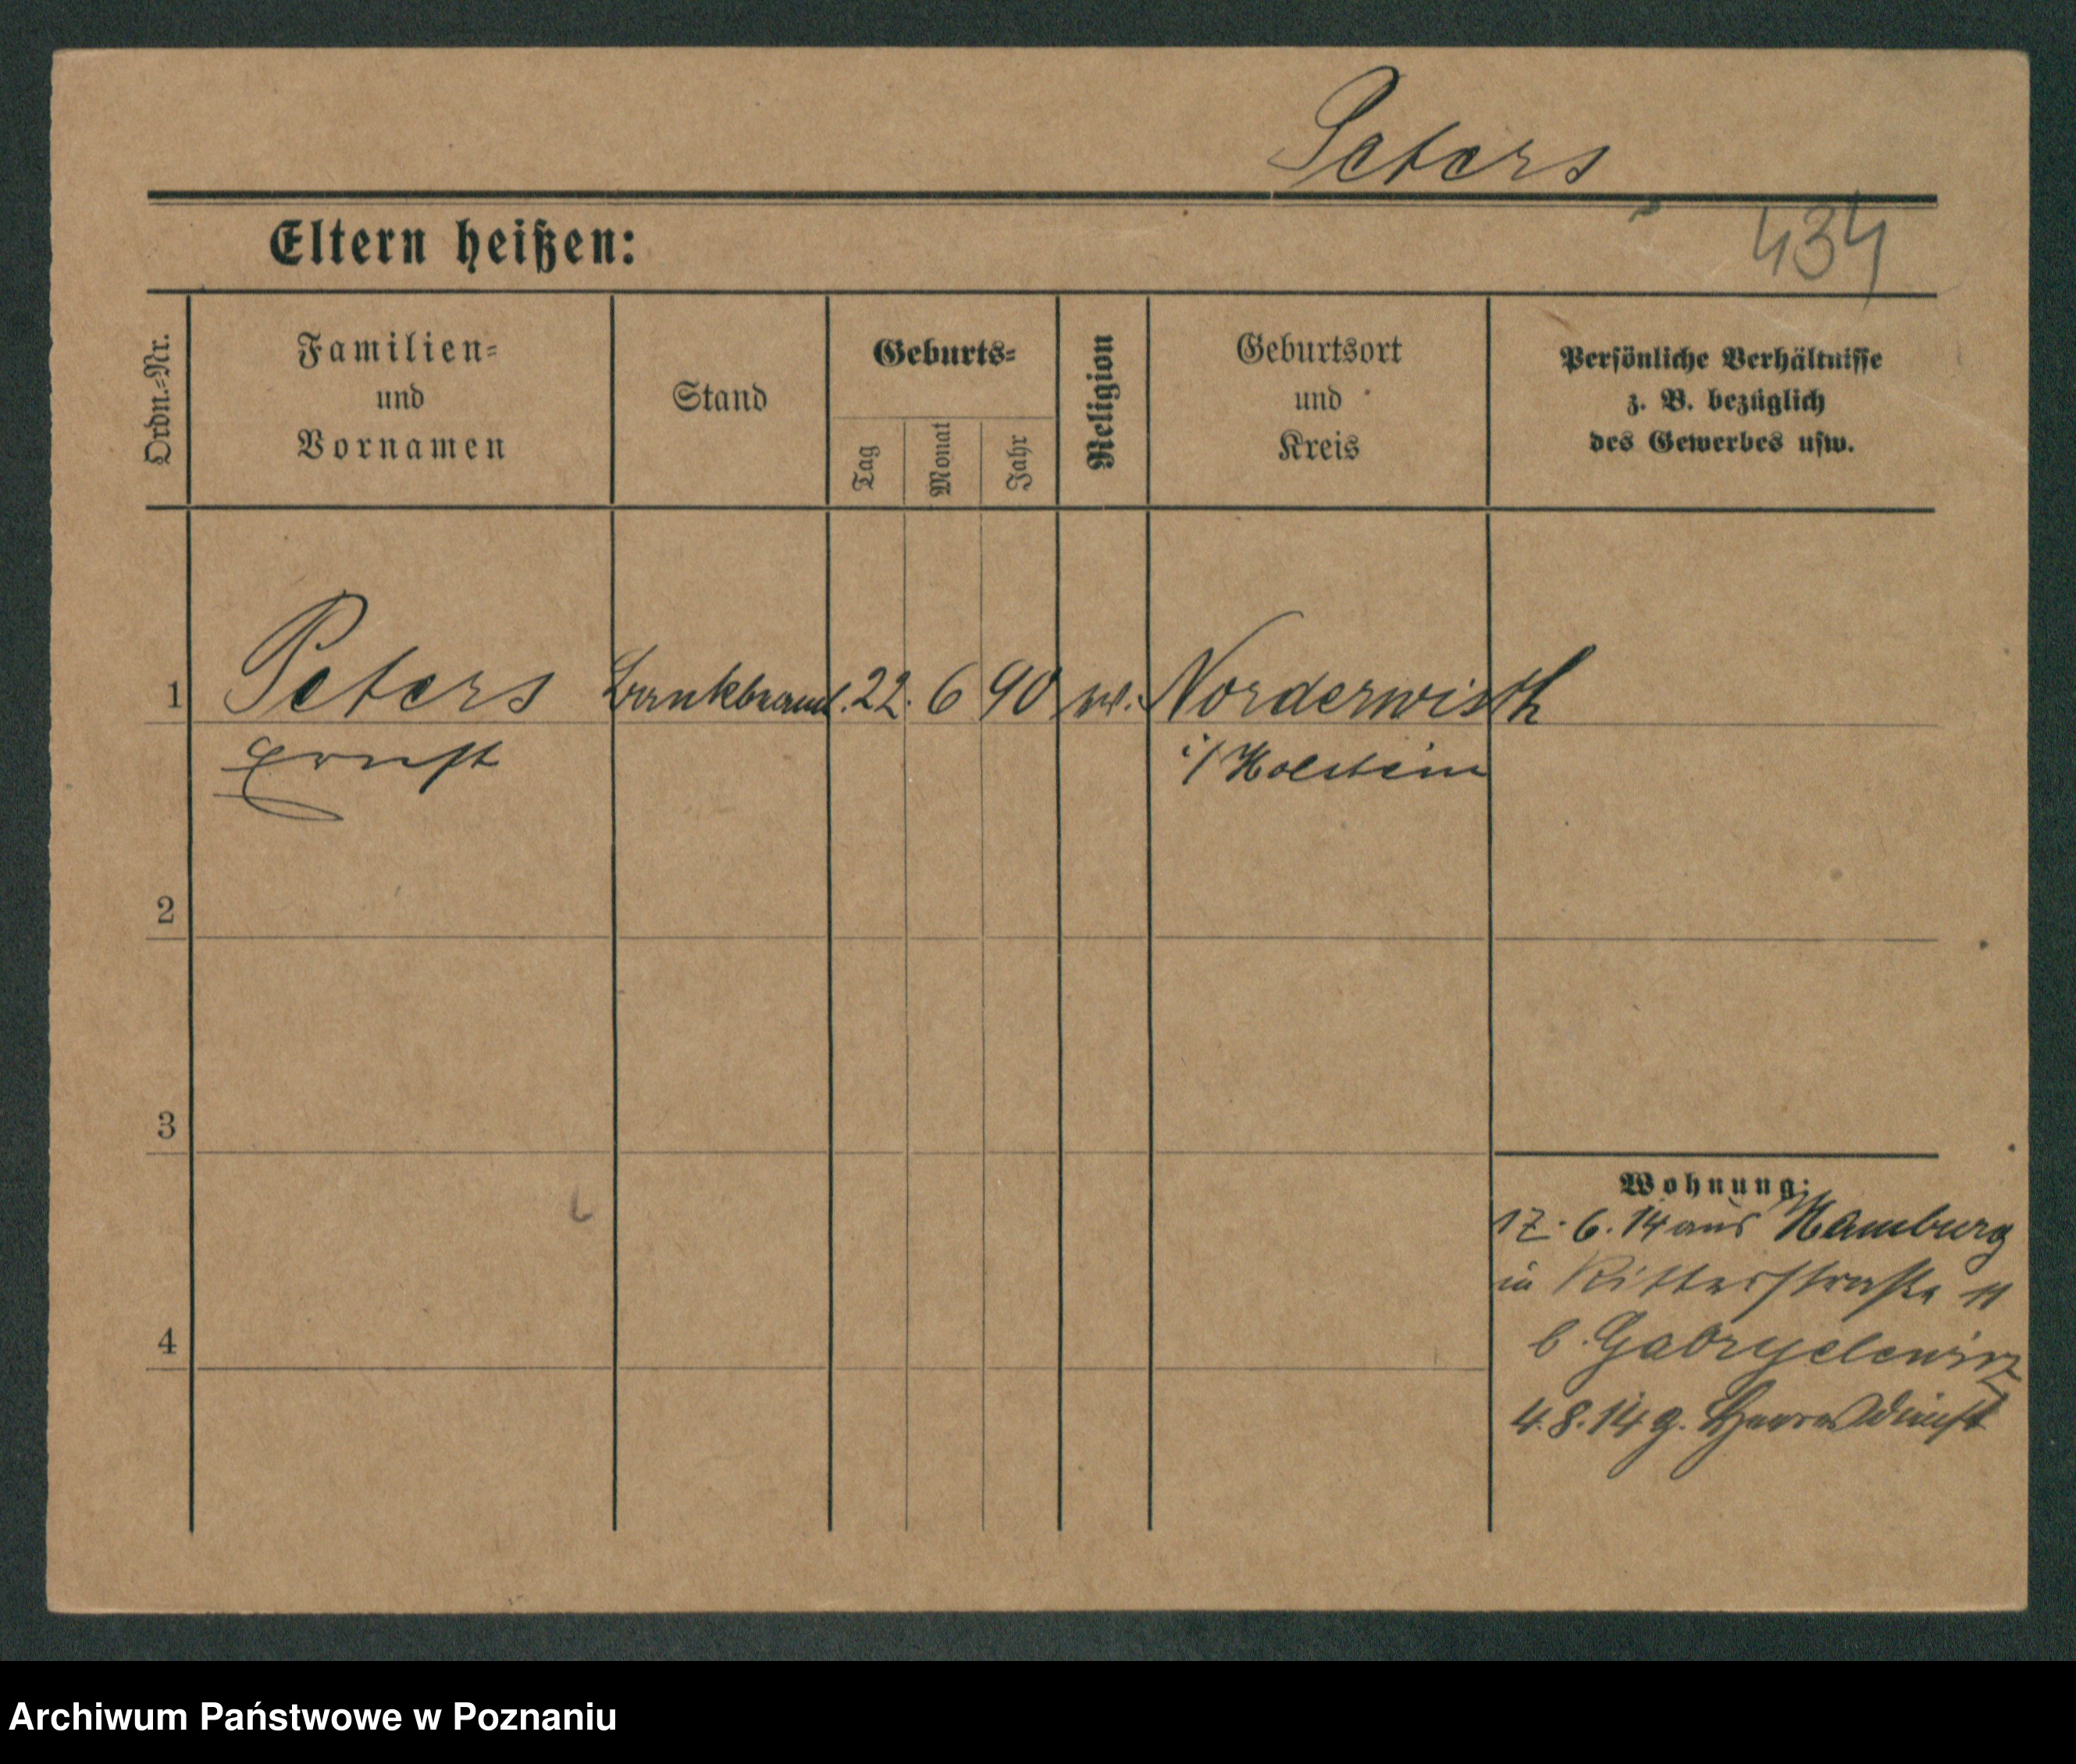 Peters
434
Eltern heißen:
Ordn.-Nr.
Familien-
und
Vornamen
Stand
Geburts-
Tag
Monat
Jahr
Religion
Geburtsort
und
Kreis
Persönliche Verhältnisse
z. B. bezüglich
des Gewerbes usw.
1 Peters Bankbeamt. 22. 6 90 ev. Norderwisch
Ernst i/Holstein
2
3
4
Wohnung:
17. 6. 14 aus Hamburg
in Ritterstraße 11
b. Gabryelewicz
4. 8. 14 z. Heeresdienst
Archiwum Państwowe w Poznaniu